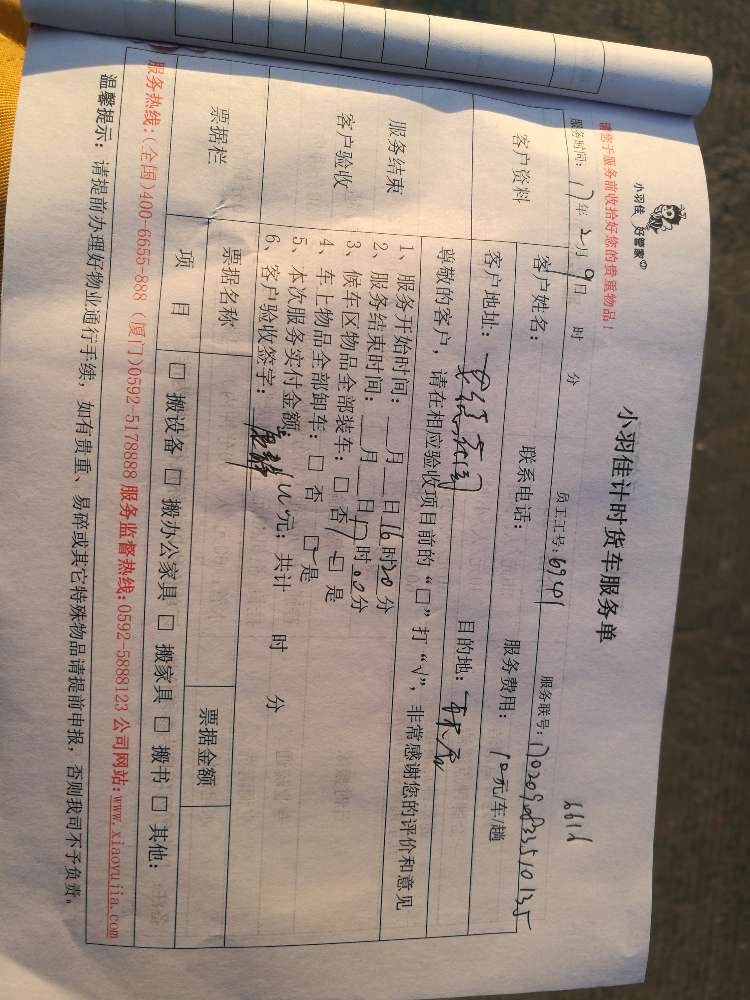 小羽佳 好管家
请您于服务前收拾好您的贵重物品！
小羽佳计时货车服务单
6616
服务时间：17年2月9日 时 分 员工工号：6941 服务联号：
客户资料 客户姓名： 联系电话： 服务费用： 元/车/趟
客户地址： 目的地：
服务结束
客户验收
尊敬的客户，请在相应验收项目前的“□”打“√”，非常感谢您的评价和意见
1、服务开始时间：__月__日16时20分
2、服务结束时间：__月__日17时00分
3、候车区物品全部装车：□ 否 □ 是
4、车上物品全部卸车：□ 否 □ 是
5、本次服务实付金额： 元；共计 时 分
6、客户验收签字：
票据栏 票据名称 票据金额
项 目 □ 搬设备 □ 搬办公家具 □ 搬家具 □ 搬书 □ 其他：
服务热线：(全国)400-6655-888 (厦门)0592-5178888 服务监督热线：0592-5888123 公司网站：www.xiaoyujia.com
温馨提示：请提前办理好物业通行手续，如有贵重、易碎或其它特殊物品请提前申报，否则我司不予负责。